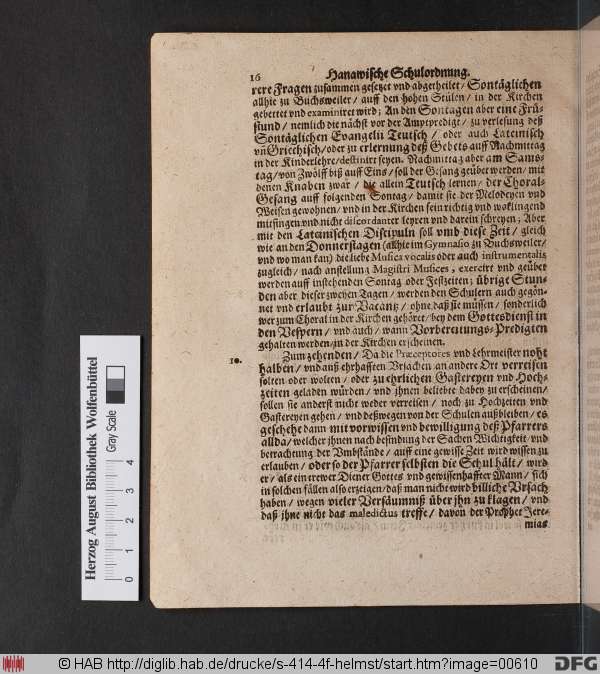 16 Hanawische Schulordnung.
rere Fragen zusammen gesetzet vnd abgetheilet / Sontäglichen
allhie zu Buchsweiler / auff den hohen Stülen / in der Kirchen
gebettet vnd examiniret wird; An den Sontagen aber eine Frü-
stund / nemlich die nächst vor der Amptpredigt / zu verlesung deß
Sontäglichen Evangelii Teutsch / oder auch Lateinisch
vñ Griechisch / oder zu erlernung deß Gebets auff Nachmittag
in der Kinderlehre / destinirt seyen. Nachmittag aber am Sams-
tag / von Zwölff biß auff Eins / soll der Gesang geübet werden / mit
denen Knaben zwar / die allein Teutsch lernen / der Choral-
Gesang auff folgenden Sontag / damit sie der Melodeyen vnd
Weisen gewohnen / vnd in der Kirchen fein richtig vnd wolklingend
mitsingen vnd nicht discordanter leyren vnd darein schreyen; Aber
mit den Lateinischen Discipuln soll vmb diese Zeit / gleich
wie an den Donnerstagen (allhie im Gymnasio zu Buchsweiler /
vnd wo man kan) die liebe Musica vocalis oder auch instrumentalis
zugleich / nach anstellung Magistri Musices, exercirt vnd geübet
werden auff instehenden Sontag oder Festzeiten; übrige Stun-
den aber dieser zweyen Tagen / werden den Schulern auch gegön-
net vnd erlaubt zur Vacantz / ohne daß sie müssen / sonderlich
wer zum Choral in der Kirchen gehöret / bey dem Gottesdienst in
den Vespern / vnd auch / wann Vorbereitungs-Predigten
gehalten werden / in der Kirchen erscheinen.
10. Zum zehenden / Da die Præceptores vnd Lehrmeister noht
halben / vnd auß ehrhafften Vrsachen an andere Ort verreisen
solten oder wolten / oder zu ehrlichen Gastereyen vnd Hoch-
zeiten geladen würden / vnd ihnen beliebte dabey zu erscheinen /
sollen sie anderst nicht weder verreisen / noch zu Hochzeiten vnd
Gastereyen gehen / vnd deßwegen von der Schulen außbleiben / es
geschehe dann mit vorwissen vnd bewilligung deß Pfarrers
allda / welcher ihnen nach befindung der Sachen Wichtigkeit / vnd
betrachtung der Vmbstände / auff eine gewisse Zeit wird wissen zu
erlauben / oder so der Pfarrer selbsten die Schul hält / wird
er / als ein trewer Diener Gottes vnd gewissenhaffter Mann / sich
in solchen fällen also erzeigen / daß man nicht wird billiche Vrsach
haben / wegen vieler Versäumniß über ihn zu klagen / vnd
daß ihne nicht das maledictus treffe / davon der Prophet Jere-
mias
Herzog August Bibliothek Wolfenbüttel
Gray Scale
0 1 2 3 4
© HAB http://diglib.hab.de/drucke/s-414-4f-helmst/start.htm?image=00610
DFG